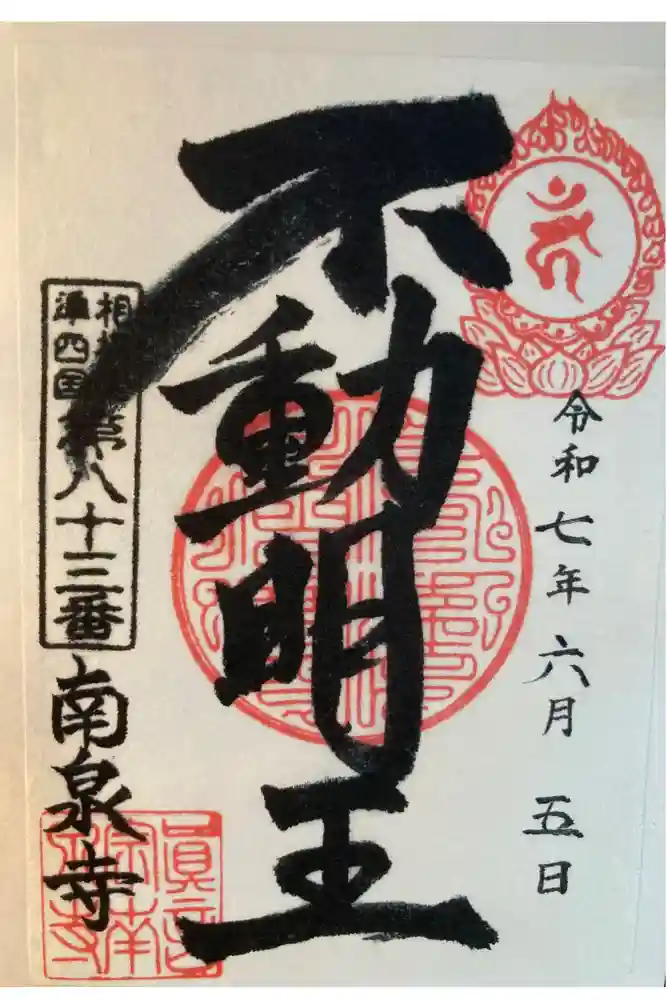 令和七年六月 五日
不動明王
相模
準四国
第八十三番
南泉寺